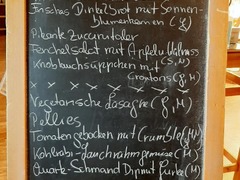 Frisches Dinkelbrot mit Sonnen-
blumenkernen (g)
Pikante
Fenchelsalat mit Apfel u. Walnuss
Knoblauchsüppchen mit (S,M)
Croutons (g,M)
x x x x x x x x
Vegetarische Lasagne (g,M)
Pellies
Tomaten gebacken mit Crumble (g,M)
Kohlrabi-Lauchrahmgemüse (M)
Quark-Schmand Dip mit Gurke (M)